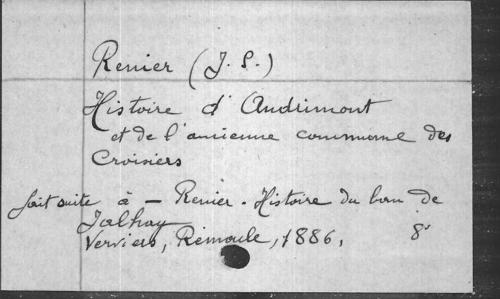 Renier (J. S.)
Histoire d'Andrimont
et de l'ancienne commune des
Croisiers
fait suite à – Renier. Histoire du ban de
Jalhay
Verviers, Remacle, 1886, 8°